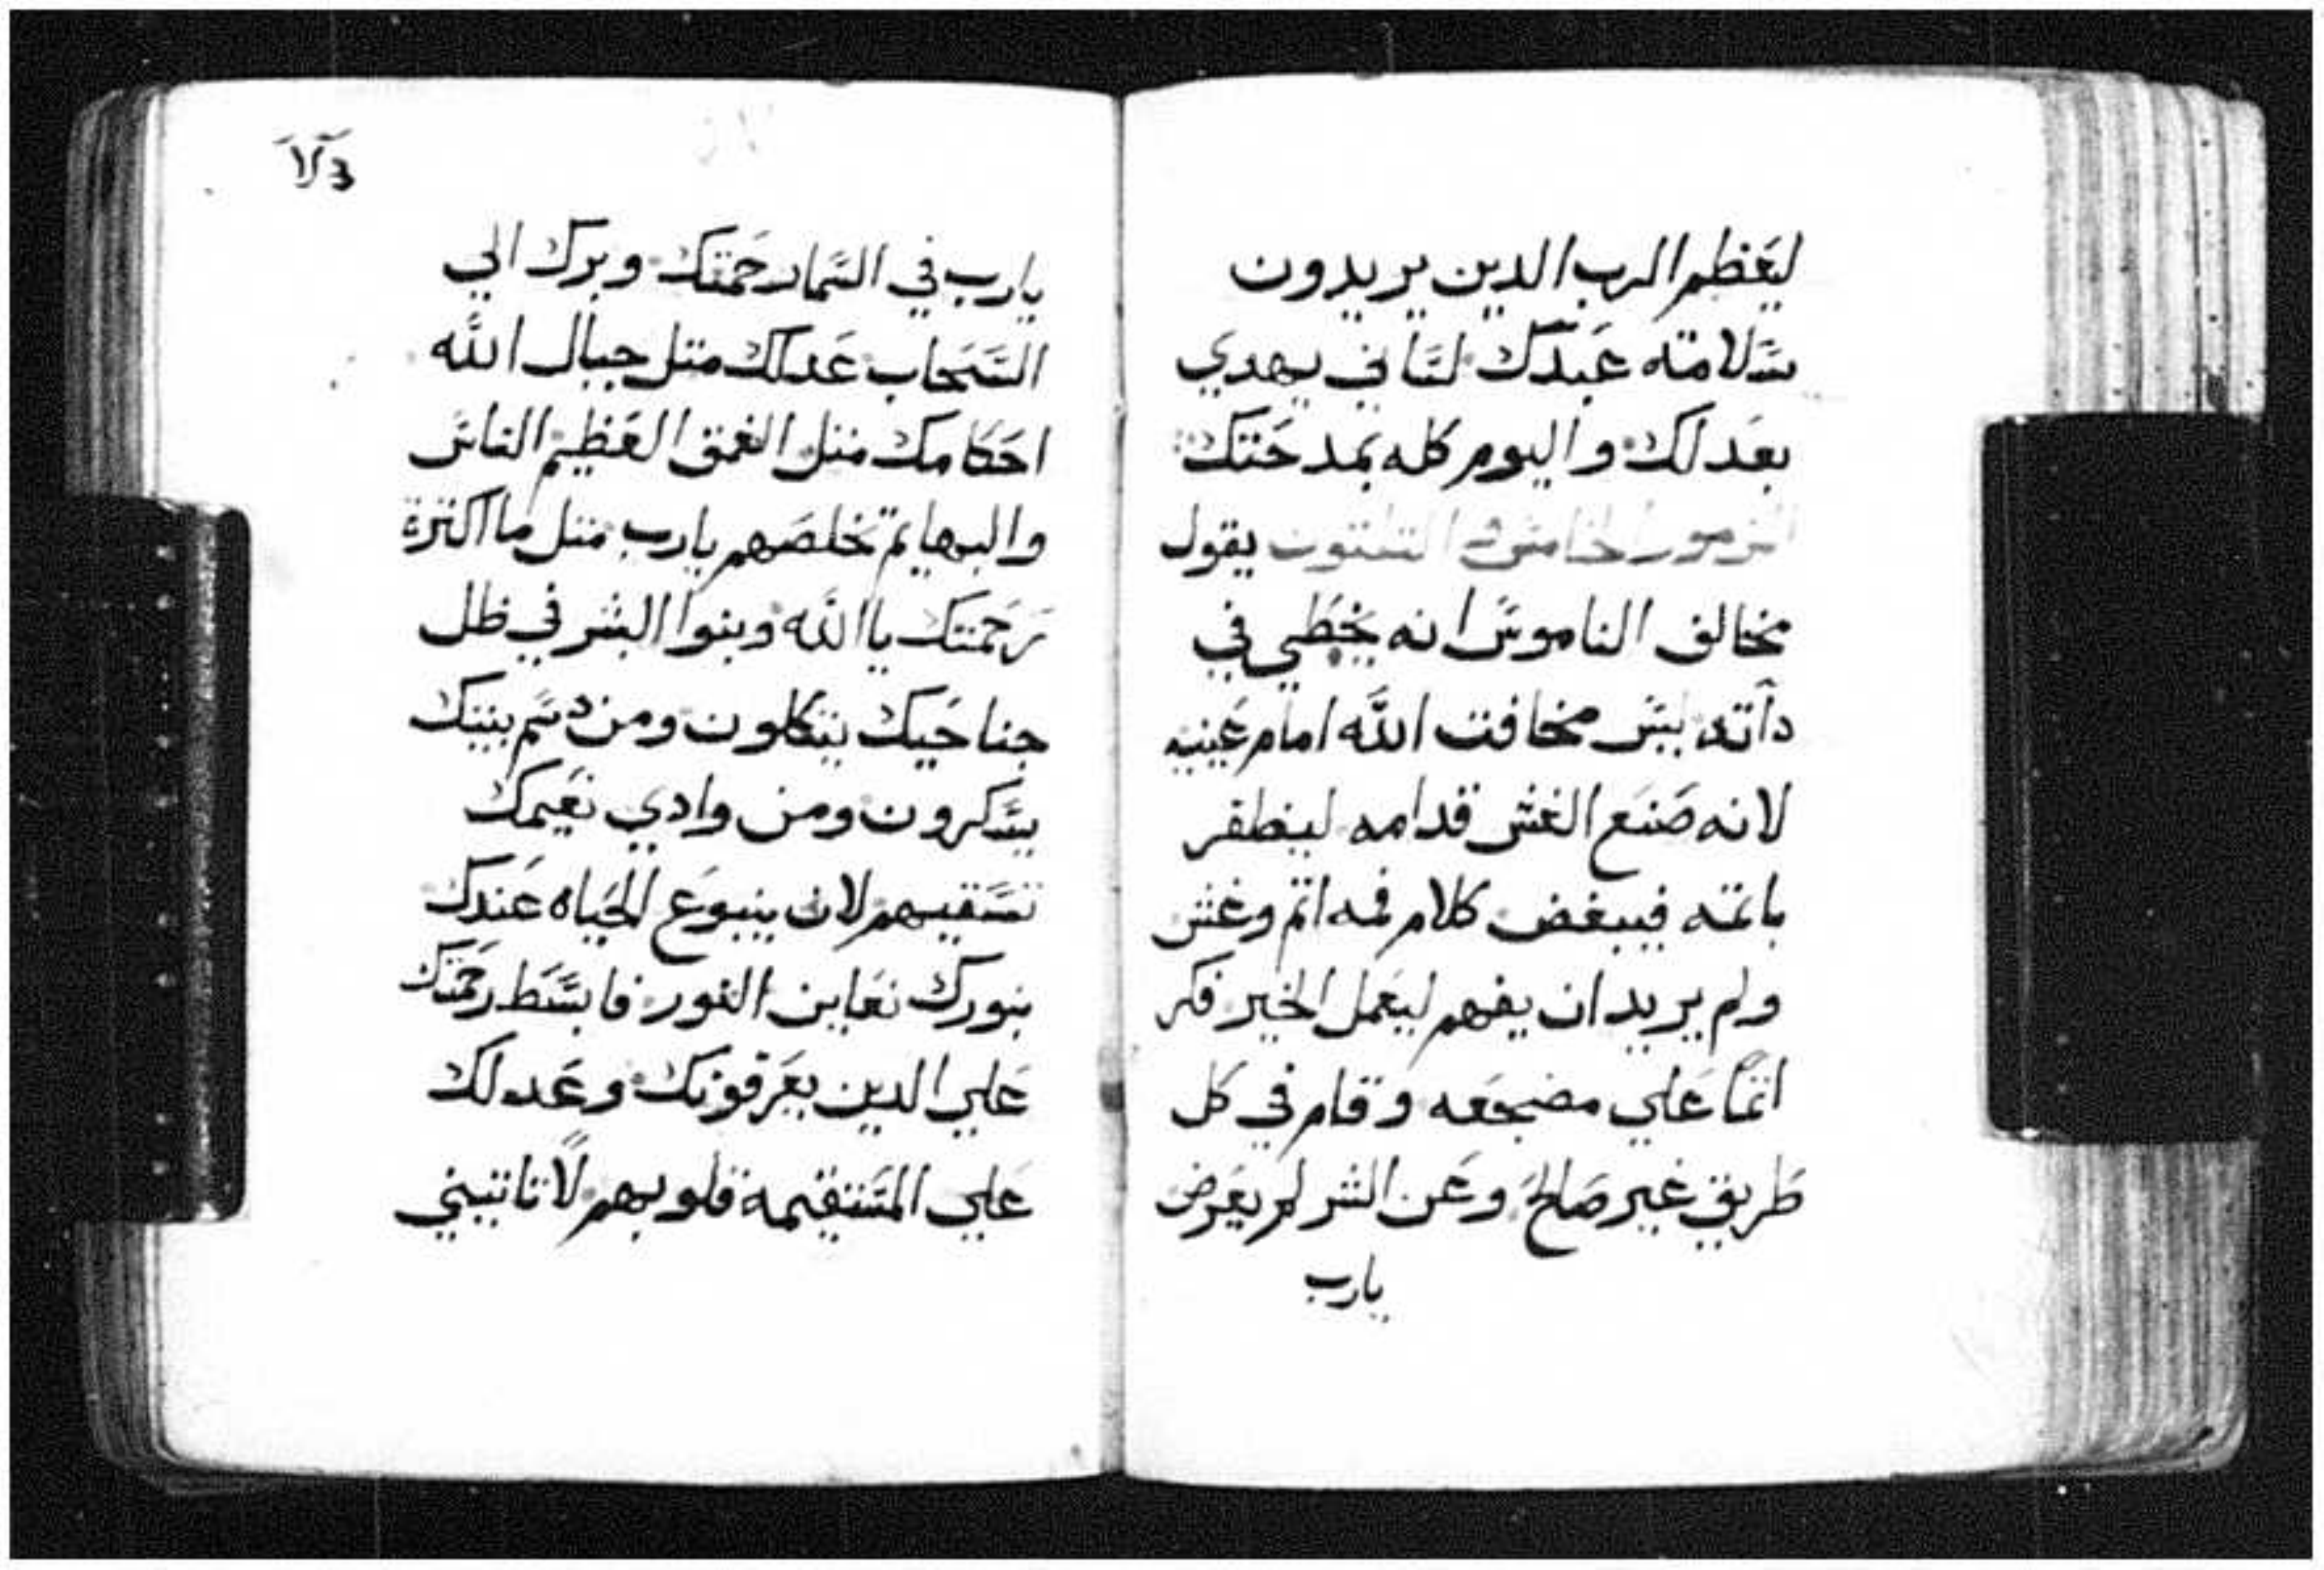 ليعظم الرب الدين يريدون
سلامته عبدك لساني يهدي
بعدلك واليوم كله بمدحتك
المزمور الخامس والتلتون يقول
مخالف الناموس انه يخطي في
داته ليس مخافت الله امام عينيه
لانه صنع الغش قدامه ليظفر
باتمه فيبغض كلام فمه اتم وغش
ولم يريد ان يفهم ليعمل الخير فكر
اتمًا علي مضجعه وقام في كل
طريق غير صالح وعن الشر لم يعرض
يارب
يارب في السما رحمتك وبرك الي
السحاب عدلك متل جبال الله
احكامك متل الغمق العظيم الناس
والبهايم تخلصهم يارب متل ما اكترة
رحمتك يا الله وبنوا البشر في ظل
جناحيك يتكلون ومن دسم بيتك
يسكرون ومن وادي نعيمك
تسقيهم لان ينبوع الحياه عندك
بنورك نعاين النور فابسط رحمتك
علي الدين يعرفونك وعدلك
علي المستقيمة قلوبهم لا تاتيني